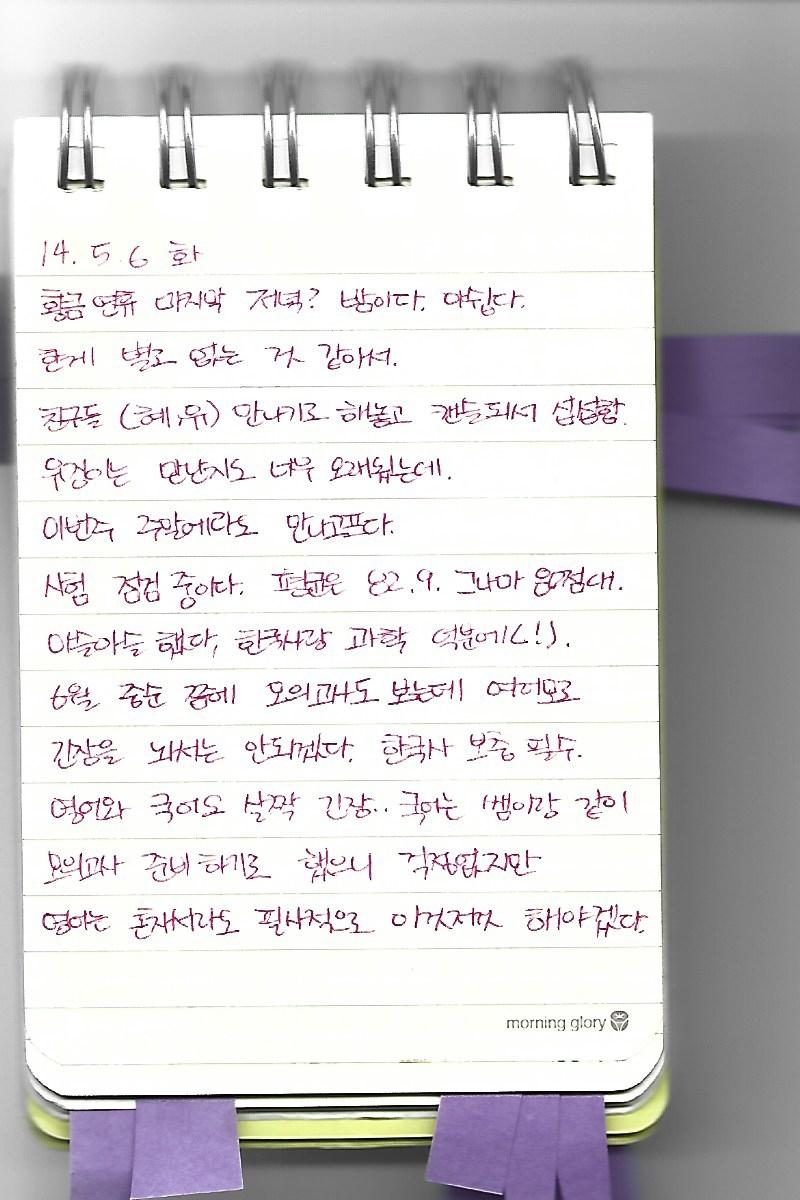 14. 5. 6 화
황금연휴 마지막 저녁? 밤이다. 아쉽다.
한게 별로 없는 것 같아서.
친구들 (혜,유) 만나기로 해놓고 캔슬되서 섭섭함.
유강이는 만난지도 너무 오래됬는데.
이번주 주말에라도 만나고프다.
시험 점검 중이다. 평균은 82.9. 그나마 80점대.
아슬아슬 했다, 한국사랑 과학 덕분에(!).
6월 중순 쯤에 모의고사도 보는데 여러모로
긴장을 놔서는 안되겠다. 한국사 보충 필수.
영어와 국어도 살짝 긴장.. 국어는 쌤이랑 같이
모의고사 준비하기로 했으니 걱정없지만
영어는 혼자서라도 필사적으로 이것저것 해야겠다.
morning glory